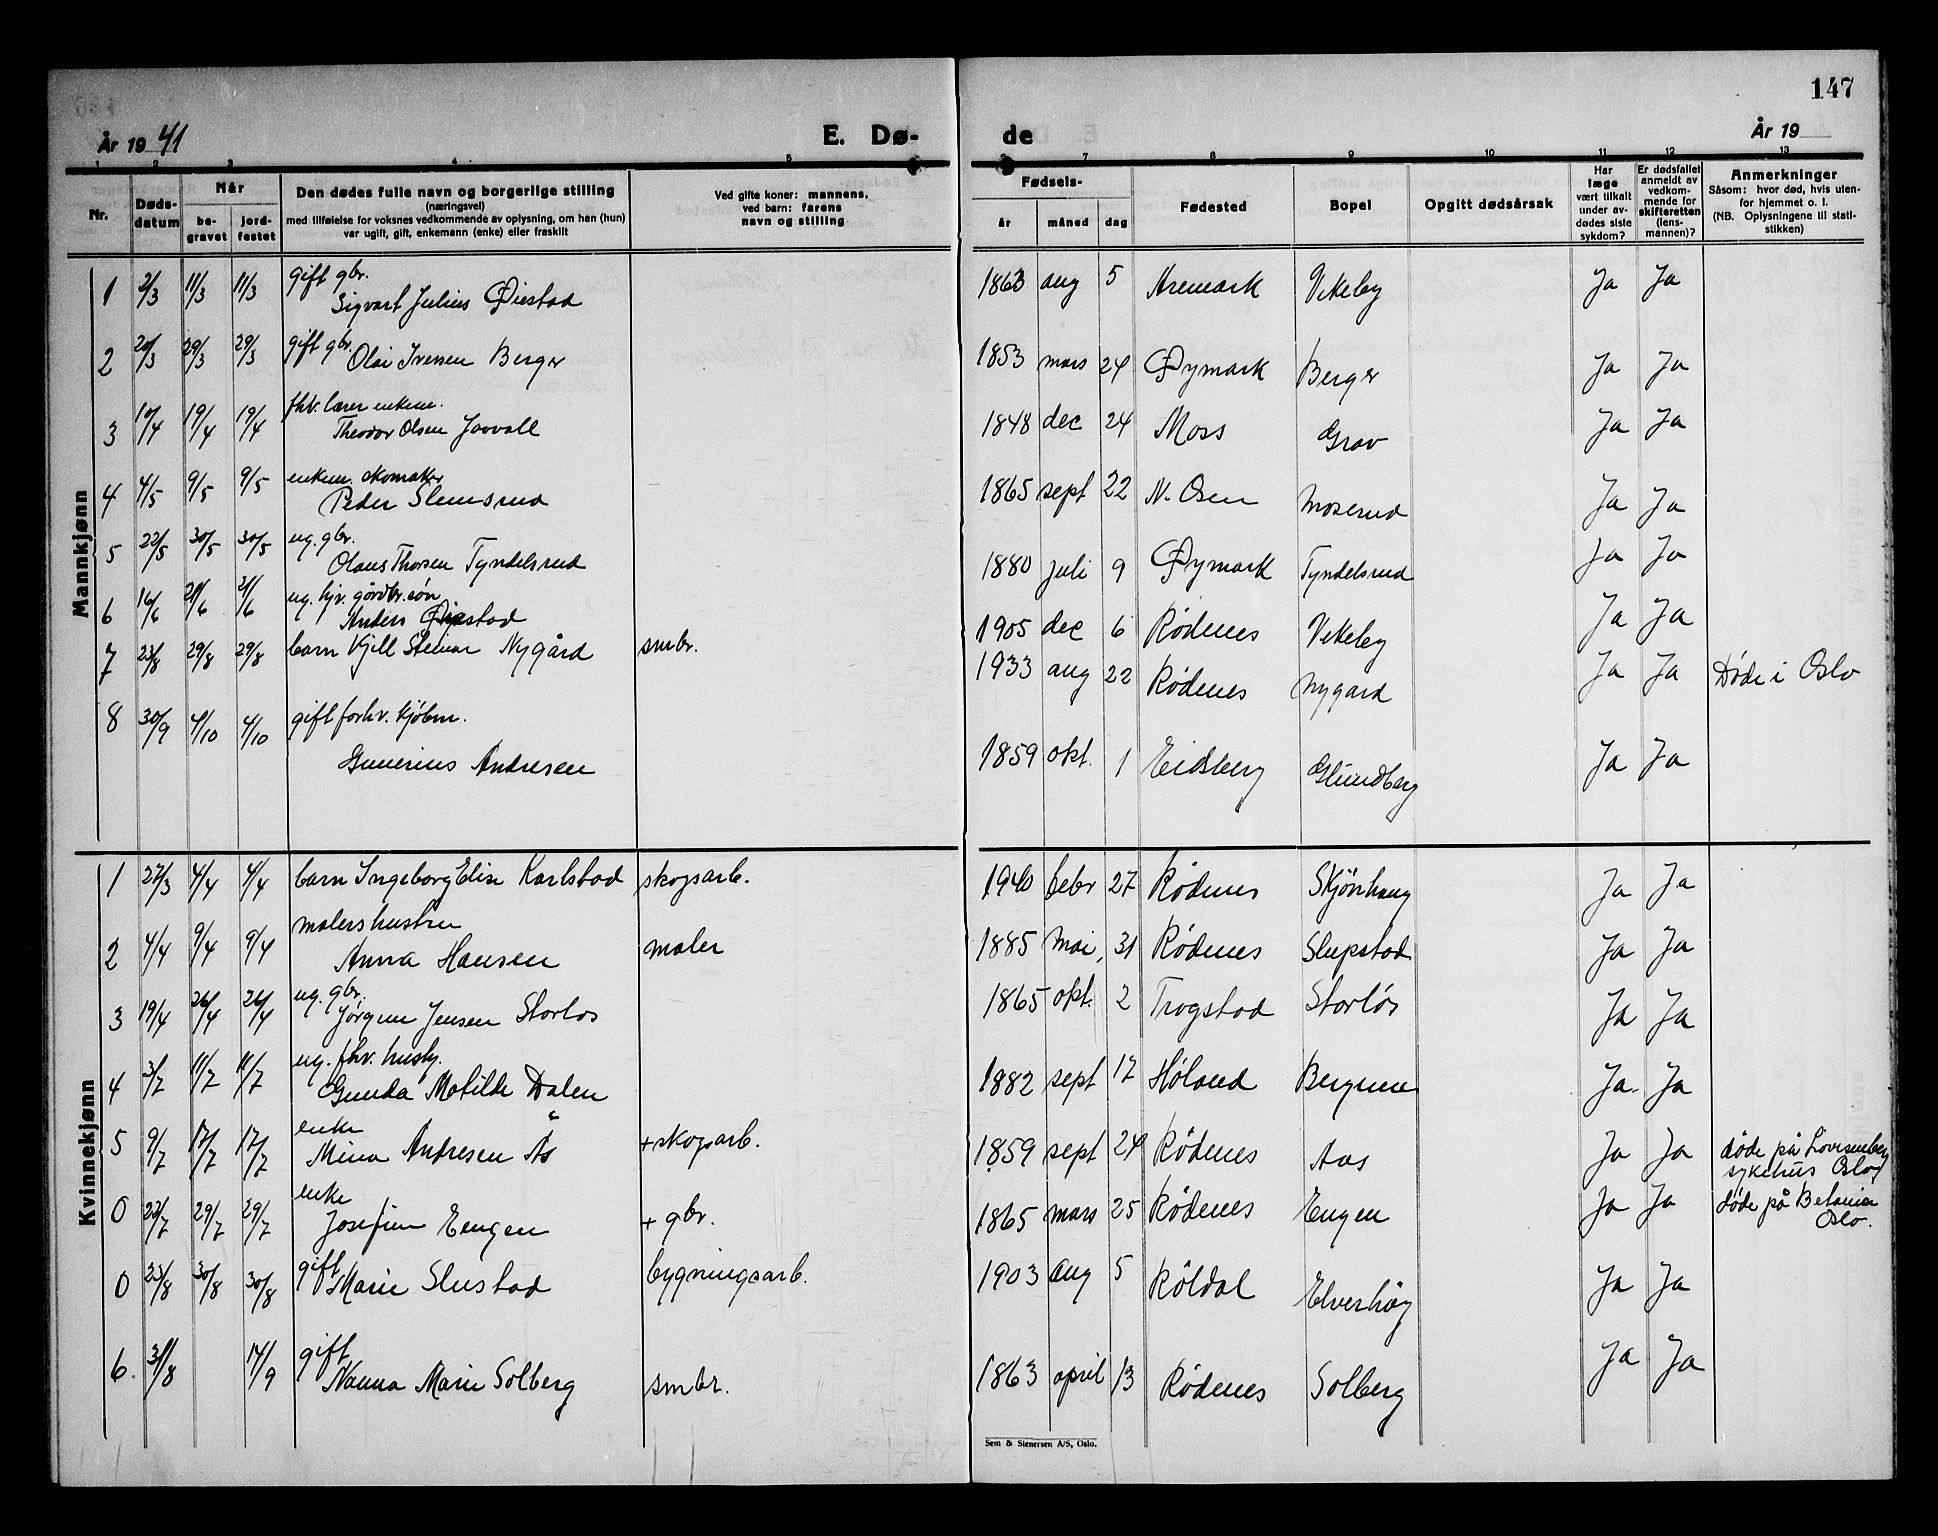 147
År 19 41 E. Dø- de År 19
1 2 3 4 5 6 7 8 9 10 11 12 13
Nr. Dødsdatum Når begravet jordfestet Den dødes fulle navn og borgerlige stilling (næringsvei) med tilføielse for voksnes vedkommende av oplysning, om han (hun) var ugift, gift, enkemann (enke) eller fraskilt Ved gifte koner: mannens, ved barn: farens navn og stilling Fødsels- år måned dag Fødested Bopel Opgitt dødsårsak Har læge vært tilkalt under avdødes siste sykdom? Er dødsfallet anmeldt av vedkommende for skifteretten (lensmannen)? Anmerkninger Såsom: hvor død, hvis utenfor hjemmet o. l. (NB. Oplysningene til statistikken)
Mannkjønn
1 2/3 11/3 11/3 gift gbr. Sigvart Julius Øiestad 1863 aug 5 Aremark Vikeby Ja Ja
2 20/3 29/3 29/3 gift gbr. Olai Iversen Berger 1853 mars 24 Øymark Berger Ja Ja
3 10/4 19/4 19/4 fhv. lærer enkem. Theodor Olsen Javvall 1848 dec 24 Moss Grav Ja Ja
4 4/5 9/5 9/5 enkem. skomaker Peder Slemsrud 1865 sept 22 N. Osen Moserud Ja Ja
5 22/5 30/5 30/5 ug. gbr. Olaus Thorsen Tyndelsrud 1880 juli 9 Øymark Tyndelsrud Ja Ja
6 16/6 21/6 21/6 ug. hjv. gårdbr. søn Anders Øiestad 1905 dec 6 Rødenes Vikeby Ja Ja
7 23/8 29/8 29/8 barn Kjell Steinar Nygård smbr. 1933 aug 22 Rødenes Nygard Ja Ja Døde i Oslo
8 30/9 4/10 4/10 gift forhv. kjøbm. Gunerius Andresen 1859 okt. 1 Eidsberg Glundberg Ja Ja
Kvinnekjønn
1 27/3 4/4 4/4 barn Ingeborg Elise Karlstad skogsarb. 1940 febr 27 Rødenes Skjønhaug Ja Ja
2 4/4 9/4 9/4 malershustru Anna Hansen maler 1885 mai 31 Rødenes Slupstad Ja Ja
3 19/4 26/4 26/4 ug. gbr. Jørgine Jensen Storløs 1865 okt. 2 Trøgstad Storløs Ja Ja
4 3/7 11/7 11/7 ug. fhv. husby. Gunda Matilde Dalen 1882 sept 17 Høland Bergum Ja Ja
5 9/7 17/7 17/7 enke Mina Andresen Ås + skogsarb. 1859 sept 24 Rødenes Aas Ja Ja døde på Lovisenberg sykehus Oslo
0 22/7 29/7 29/7 enke Josefine Engen + gbr. 1865 mars 25 Rødenes Engen Ja Ja døde på Betania Oslo.
0 23/8 30/8 30/8 gift Marie Slustad bygningsarb. 1903 aug 5 Röldal Elverhøy Ja Ja
6. 31/8 14/9 gift Nanna Marie Solberg smbr. 1863 april 13 Rødenes Solberg Ja Ja
Sem & Stenersen A/S, Oslo.